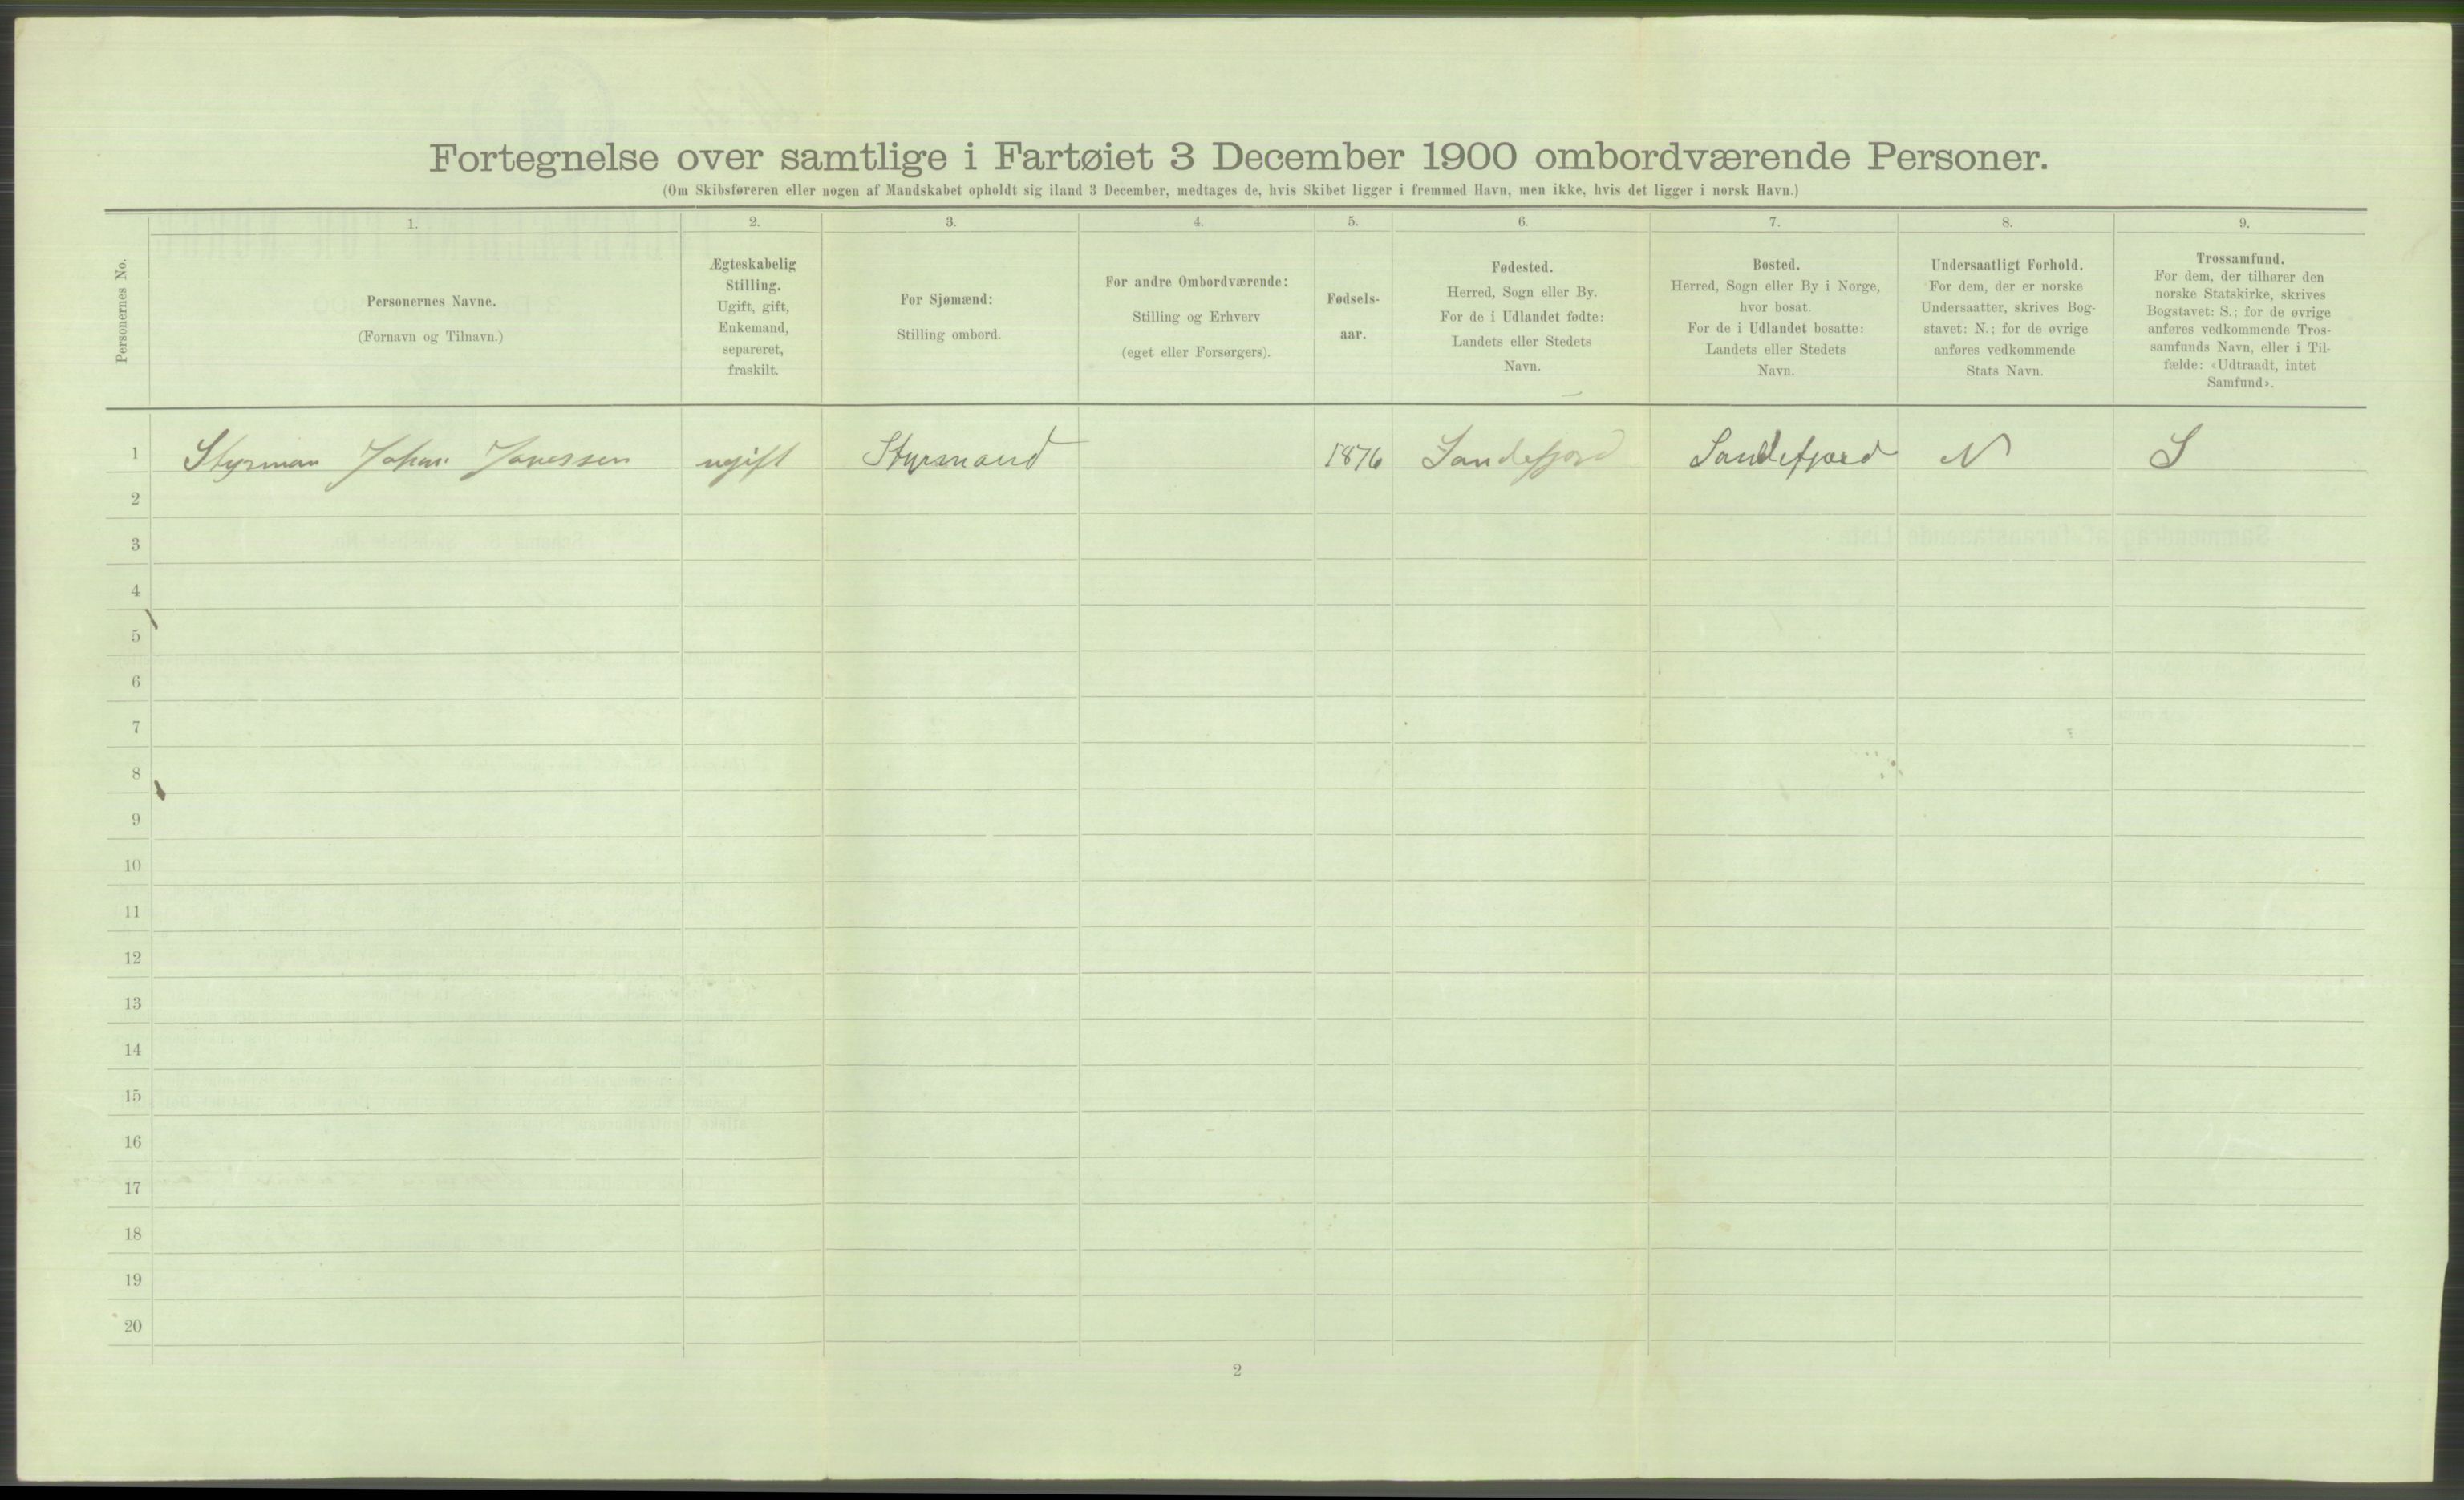 Fortegnelse over samtlige i Fartøiet 3 December 1900 ombordværende Personer.
(Om Skibsføreren eller nogen af Mandskabet opholdt sig iland 3 December, medtages de, hvis Skibet ligger i fremmed Havn, men ikke, hvis det ligger i norsk Havn.)
Personernes No.
1.
Personernes Navne.
(Fornavn og Tilnavn.)
2.
Ægteskabelig
Stilling.
Ugift, gift,
Enkemand,
separeret,
fraskilt.
3.
For Sjømænd:
Stilling ombord.
4.
For andre Ombordværende:
Stilling og Erhverv
(eget eller Forsørgers).
5.
Fødsels-
aar.
6.
Fødested.
Herred, Sogn eller By.
For de i Udlandet fødte:
Landets eller Stedets
Navn.
7.
Bosted.
Herred, Sogn eller By i Norge,
hvor bosat.
For de i Udlandet bosatte:
Landets eller Stedets
Navn.
8.
Undersaatligt Forhold.
For dem, der er norske
Undersaatter, skrives Bog-
stavet: N.; for de øvrige
anføres vedkommende
Stats Navn.
9.
Trossamfund.
For dem, der tilhører den
norske Statskirke, skrives
Bogstavet: S.; for de øvrige
anføres vedkommende Tros-
samfunds Navn, eller i Til-
fælde: «Udtraadt, intet
Samfund».
1 Styrman Johan ugift Styrmand 1876 Sandefjord Sandefjord N S
2
3
4
5
6
7
8
9
10
11
12
13
14
15
16
17
18
19
20
2